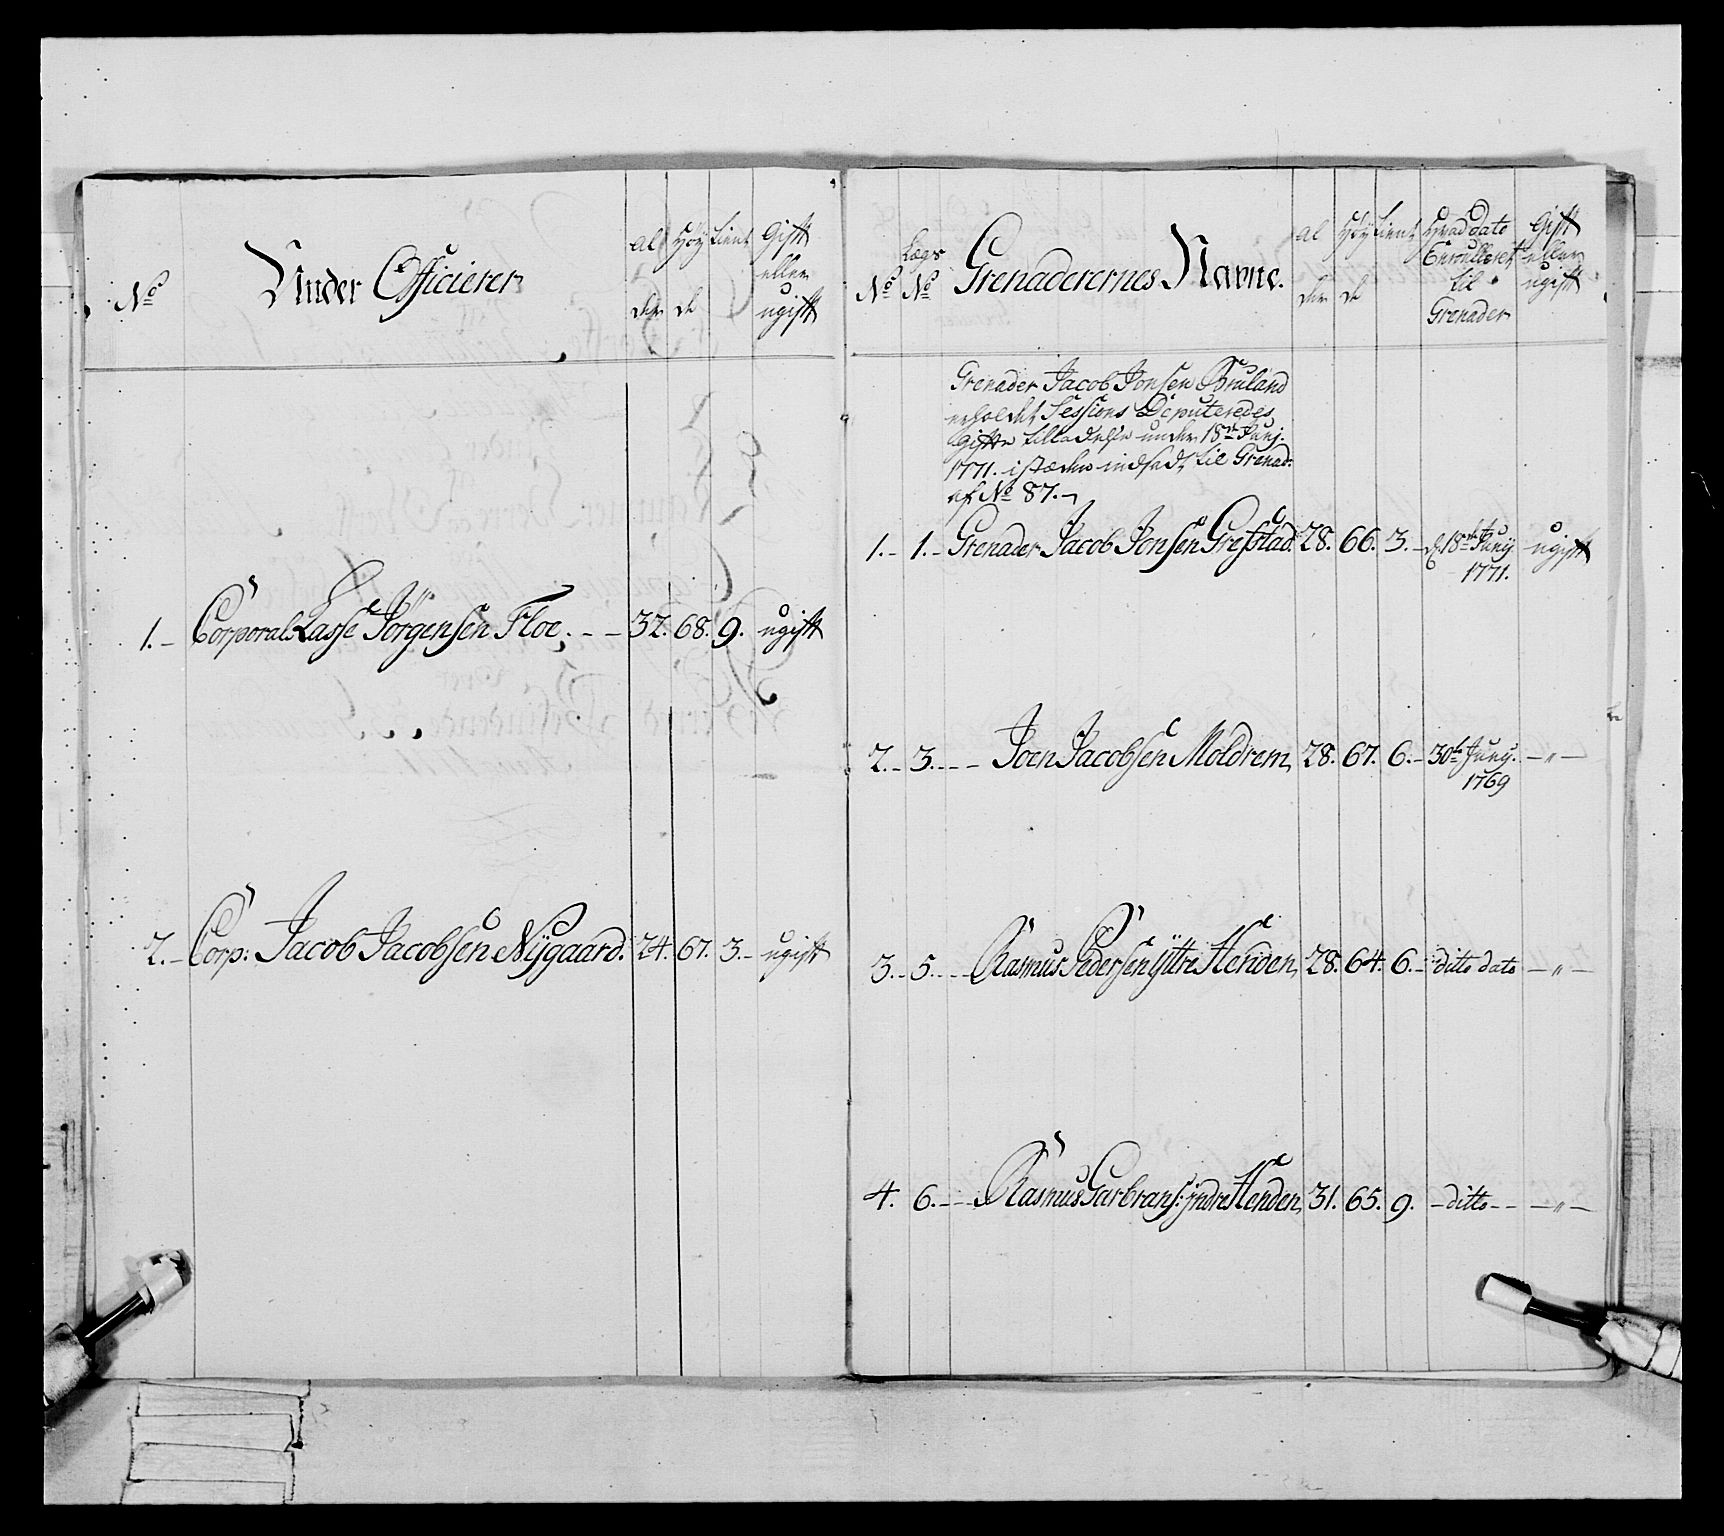 No
Under Officierer
al
der
Høy
de
Tient
Gift
eller
ugift
1. Corporal Lasse Jörgensen Floe. 32. 68. 9. ugift
2. Corp: Jacob Jacobsen Nÿgaard. 24. 67. 3. ugift
No
Lægs
No
Grenaderernes Navne.
al
der
Høy
de
Tient
Hvad dato
Enroulleret
til
Grenader
Gift
eller
ugift
Grenader Jacob Jonsen Bruland
erholdet Sessions Deputeredes
Gifte tilladelse under 18de Junj.
1771. isteden indsadt til Grenad:
af No 87.
1. 1. Grenader Jacob Jonsen Grefstad. 28. 66. 3. d. 18de Junij ugift
1771.
2. 3. Joen Jacobsen Moldrem, 28. 67. 6. 30te Junij. — " —
1769
3. 5. Rasmus Pedersen ÿttre Henden, 28. 64. 6. ditto dato — " —
4. 6. Rasmus Garbrans: jndre Henden, 31. 65. 9. ditto — " —